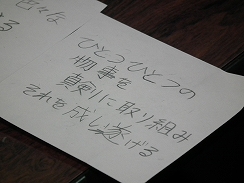 ひとつひとつの
物事を
真剣に取り組み
それを成し遂げる